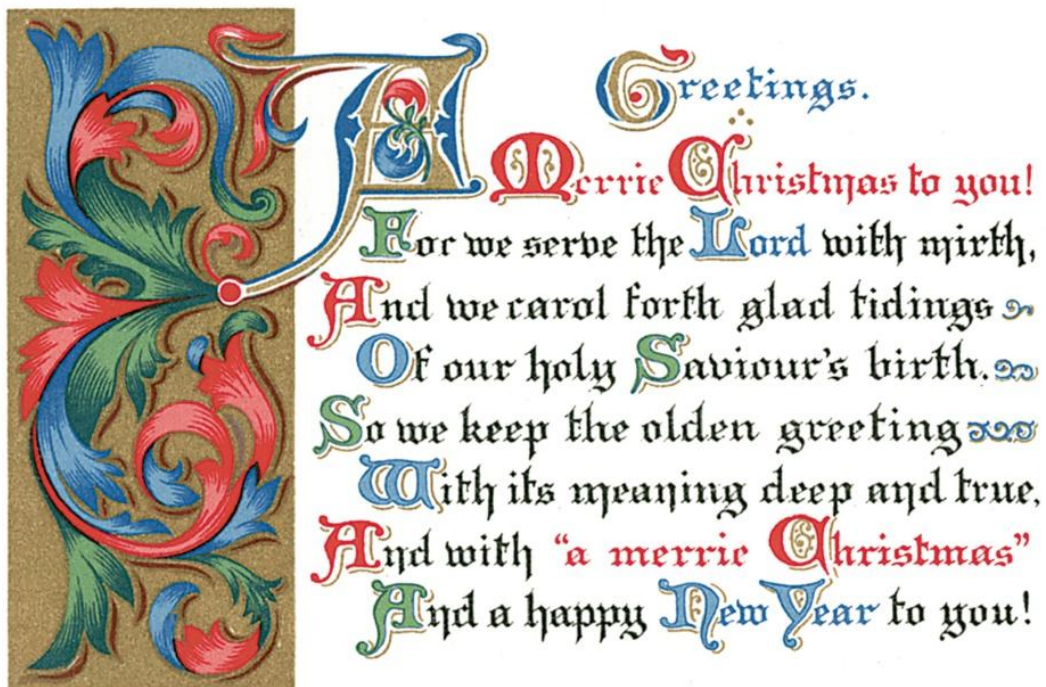 Greetings.
A Merrie Christmas to you!
For we serve the Lord with mirth,
And we carol forth glad tidings
Of our holy Saviour's birth.
So we keep the olden greeting
With its meaning deep and true,
And with “a merrie Christmas”
And a happy New Year to you!